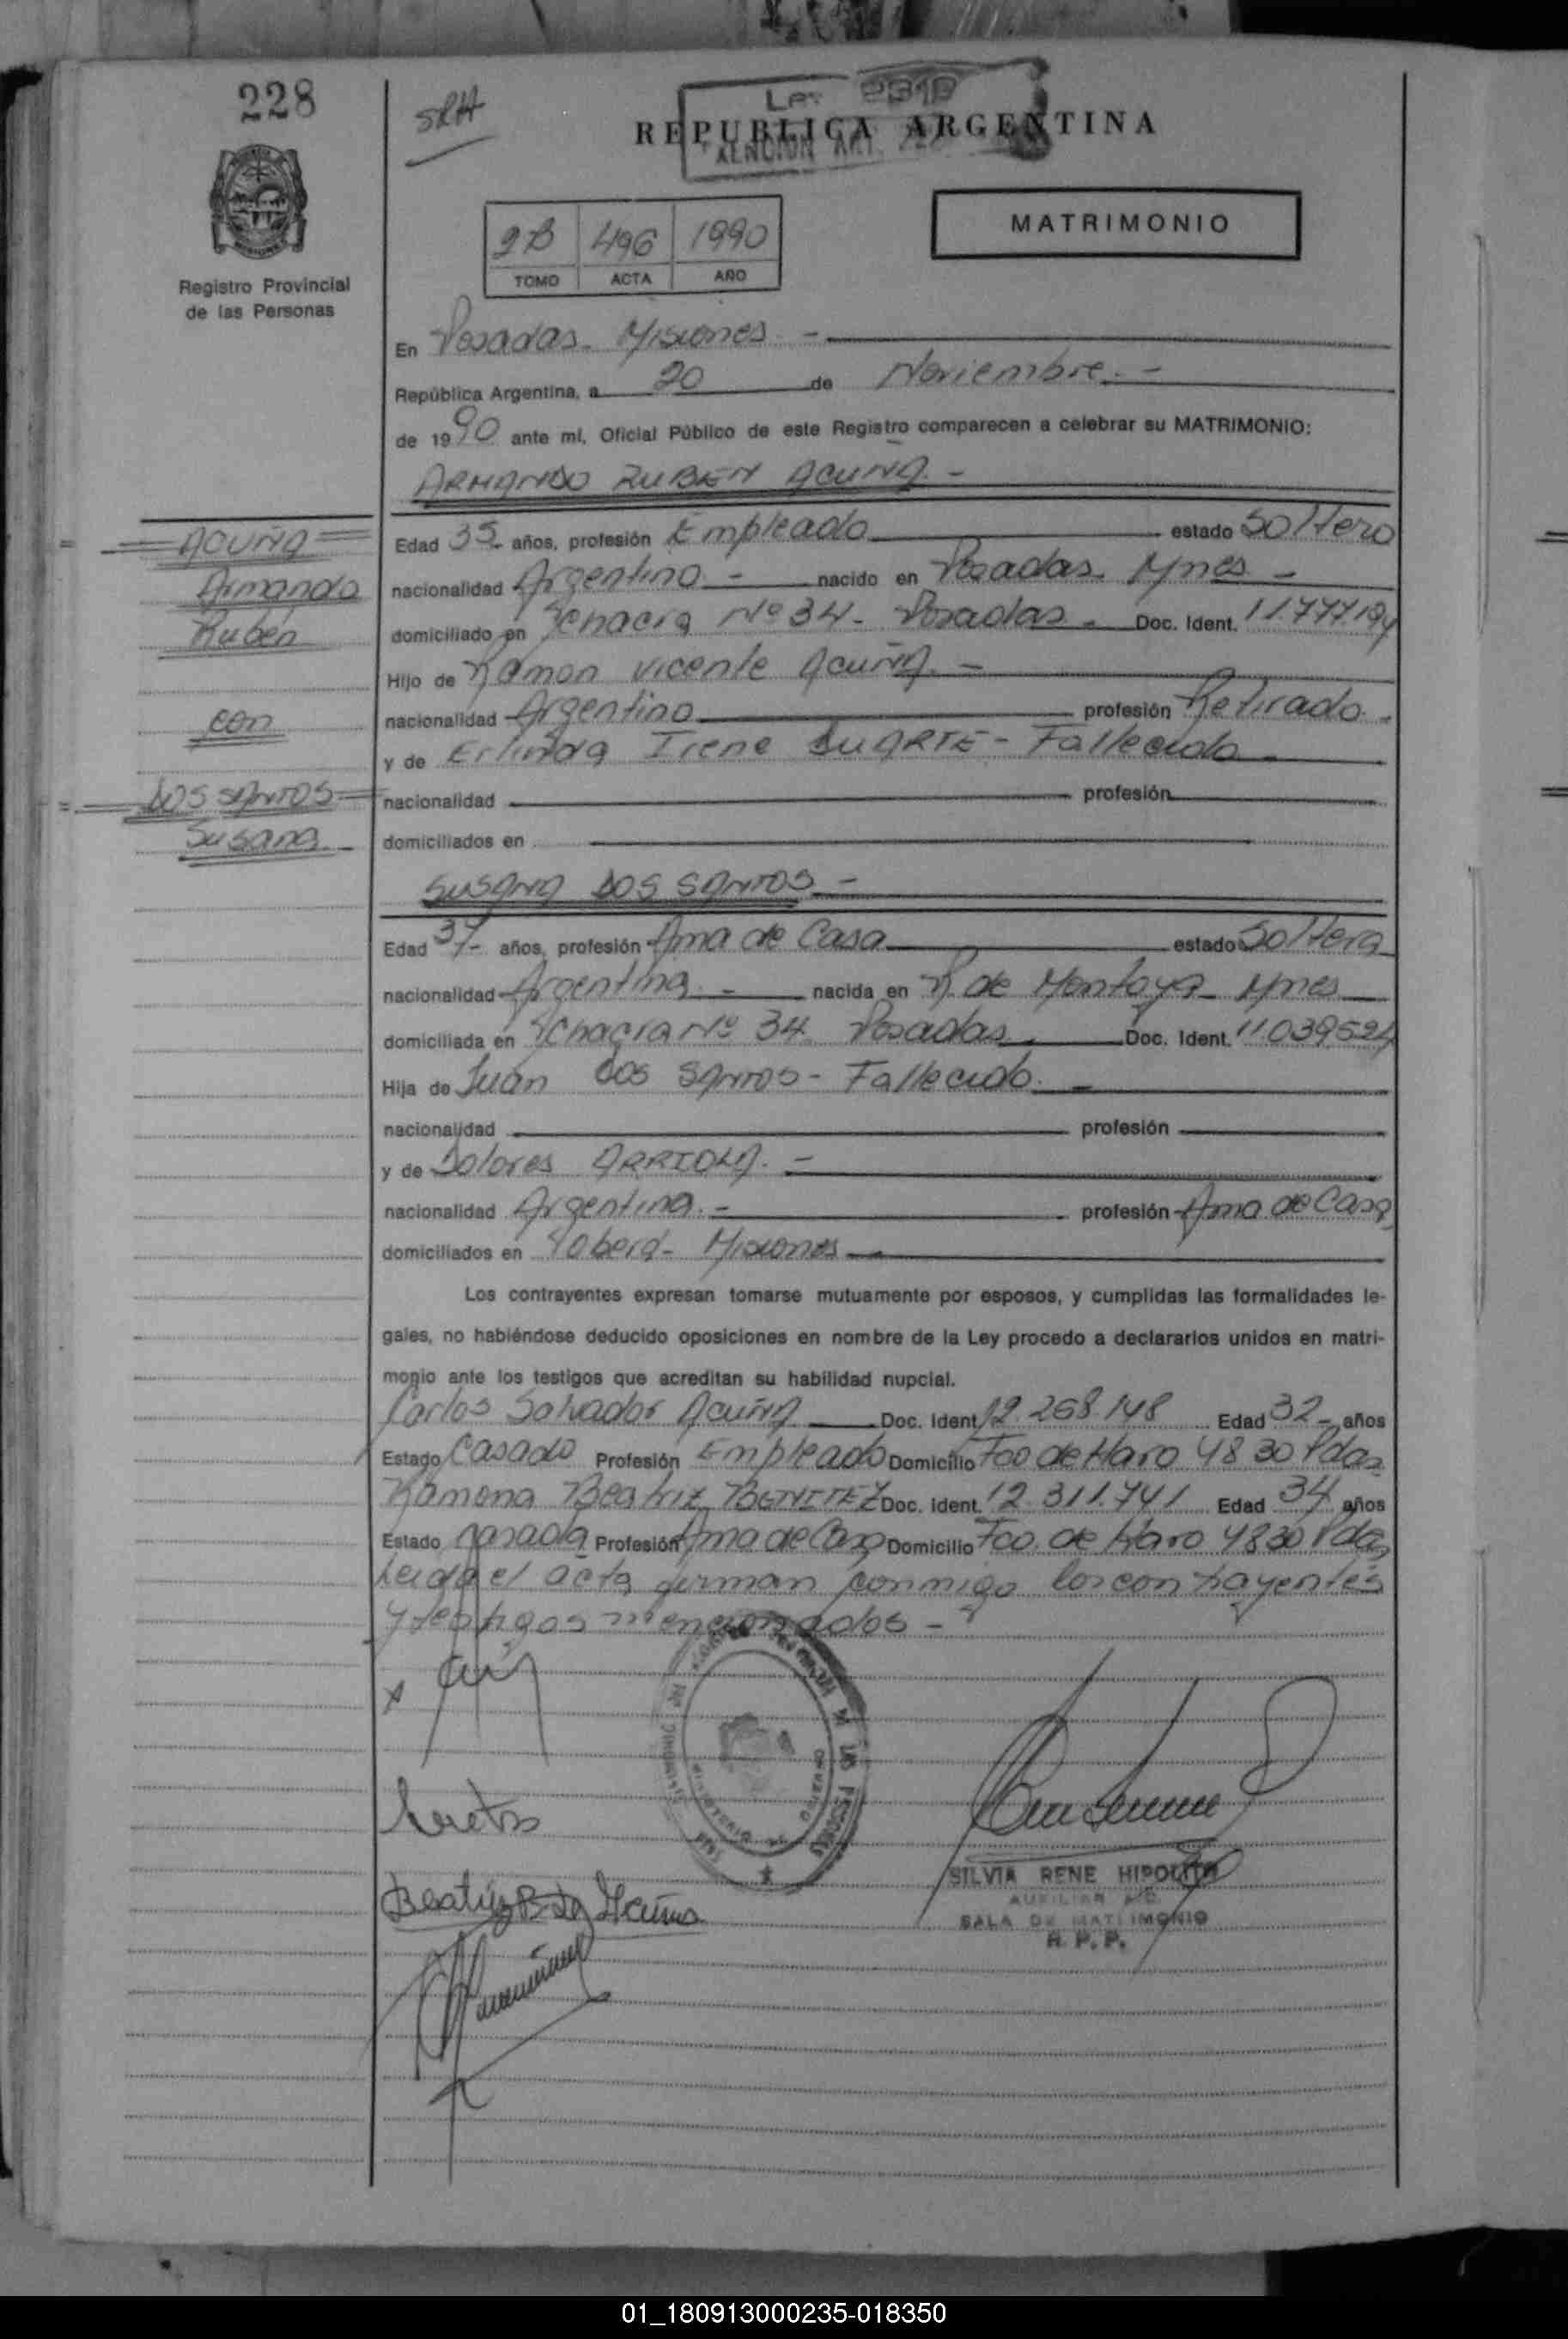 228
SRH
Ley 2310
REPUBLICA ARGENTINA
2B 496 1990
TOMO ACTA AÑO
MATRIMONIO
Registro Provincial
de las Personas
En Posadas - Misiones -
República Argentina, a 20 de Noviembre. -
de 1990 ante mí, Oficial Público de este Registro comparecen a celebrar su MATRIMONIO:
ARMANDO RUBEN ACUÑA. -
ACUÑA
Armando
Rubén
con
DOS SANTOS
Susana
Edad 35 años, profesión Empleado estado Soltero
nacionalidad Argentino - nacido en Posadas Mnes -
domiciliado en Chacra Nº 34 - Posadas - Doc. Ident. 11.777.194
Hijo de Ramon Vicente Acuña. -
nacionalidad Argentino profesión Retirado.
y de Erlinda Irene DUARTE - Fallecida
nacionalidad profesión
domiciliados en
SUSANA DOS SANTOS -
Edad 37- años, profesión Ama de Casa estado Soltera
nacionalidad Argentina - nacida en R. de Montoya Mnes
domiciliada en Chacra Nº 34 Posadas Doc. Ident. 11.039.524
Hija de Juan DOS SANTOS - Fallecido. -
nacionalidad profesión
y de Dolores ARRIOLA. -
nacionalidad Argentina. - profesión Ama de Casa
domiciliados en Oberá - Misiones
Los contrayentes expresan tomarse mutuamente por esposos, y cumplidas las formalidades le-
gales, no habiéndose deducido oposiciones en nombre de la Ley procedo a declararlos unidos en matri-
monio ante los testigos que acreditan su habilidad nupcial.
Carlos Salvador Acuña Doc. Ident. 12.268.148 Edad 32- años
Estado Casado Profesión Empleado Domicilio Fco de Haro 4830 Pdas
Ramona Beatriz BENITEZ Doc. Ident. 12.311.741 Edad 34 años
Estado Casada Profesión Ama de Casa Domicilio Fco. de Haro 4830 Pdas
Leida el acta firman conmigo los contrayentes
y testigos mencionados -
Beatriz B de Acuña
SILVIA RENE HIPOLITO
AUXILIAR A/C
SALA DE MATRIMONIO
R. P. P.
01_180913000235-018350